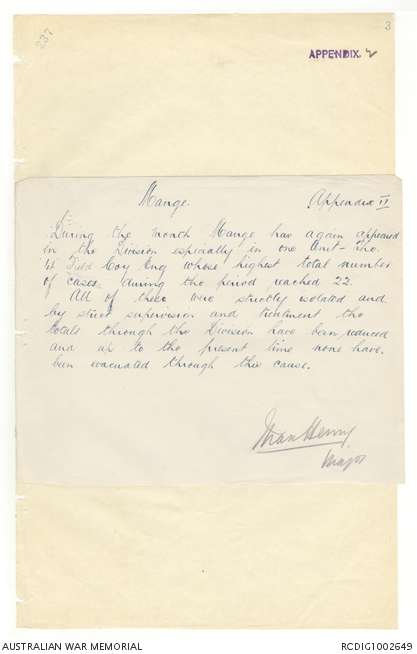 237
3
APPENDIX. 2
Mange.
Appendix II
During the month Mange has again appeared
in the Division espicially in one Unit - The
1st Field Coy Eng whose highest total number
of cases, during the period reached 22.
All of these were strictly isolated and
by strict supervision and treatment the
totals through the Division have been reduced
and up to the present time none have
been evacuated through this cause.
Max Henry
Major
AUSTRALIAN WAR MEMORIAL
RCDIG1002649